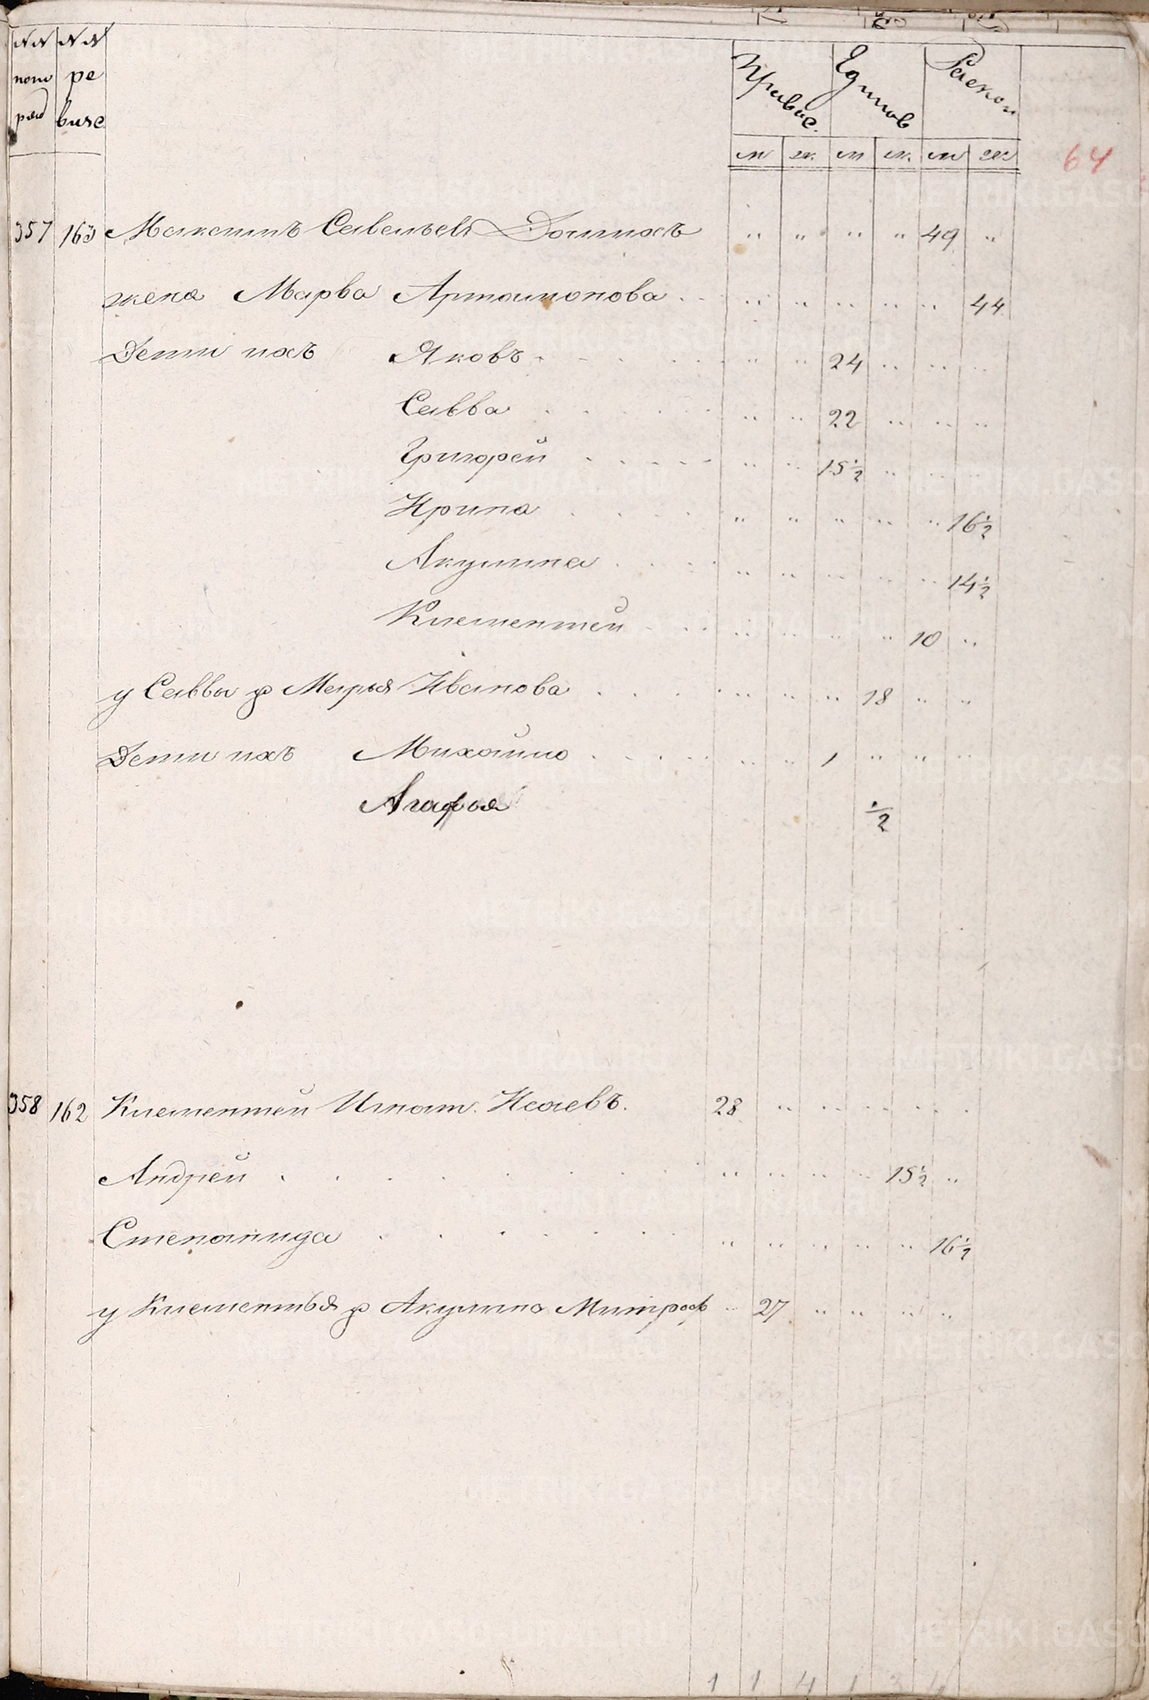 NN NN
пом ре
ряд визс
Правос. Единов Раскол
м ж. м ж. м ж
64
357 163 Максимъ Савельевъ Долгихъ " " " " 49 "
жена Марва Артамонова " " " " " 44
Дети ихъ Яковъ " " 24 " " "
Савва " " 22 " " "
Григорей " " 15½ " " "
Ирина " " " " " 16½
Акулина " " " " " 14½
Клементей " " " " 10 "
у Саввы ж Марья Иванова " " " 18 " "
Дети ихъ Михайло " " 1 " " "
Агафья ½
358 162 Клементей Игнат. Исаевъ. 28 " " " " "
Андрей " " " " 15½ "
Степанида " " " " " 16½
у Клементья ж Акулина Митроф " 27 " " " "
1 1 4 1 3 4